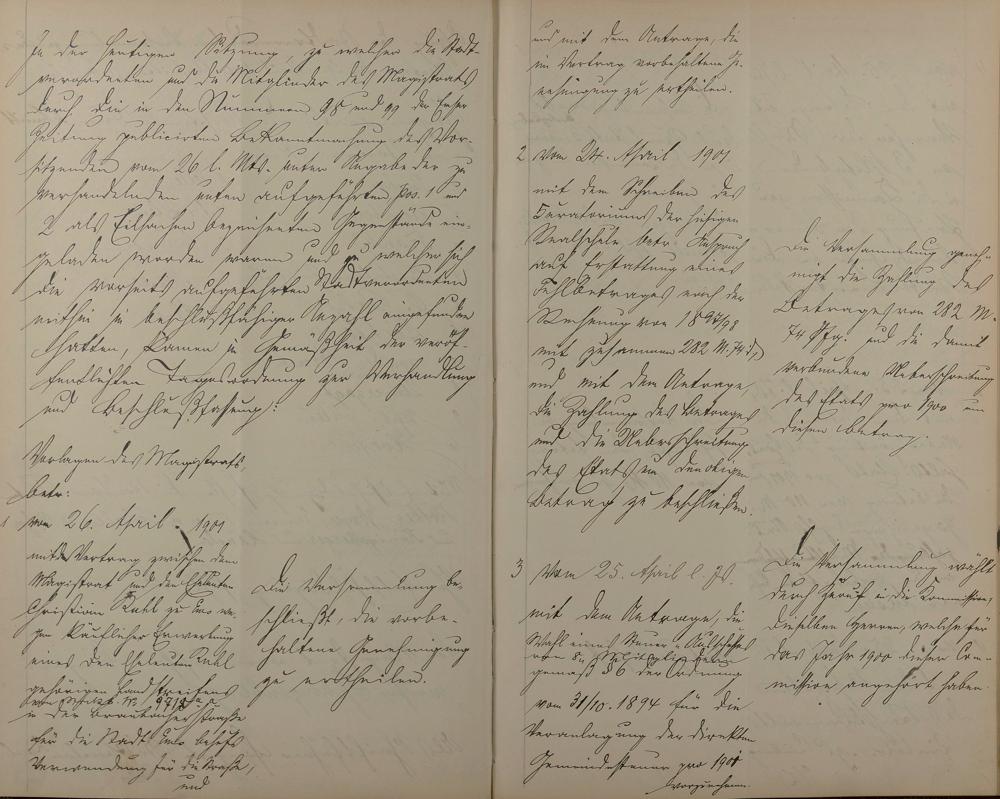 In der heutigen Sitzung, zu welcher die Stadt-
verordneten und die Mitglieder des Magistrats
durch die in den Nummern 98 und 99 der Emser
Zeitung publicirten Bekanntmachung des Vor-
sitzenden vom 26 l. Mts. unter Angabe der zu
verhandelnden unten aufgeführten pos. 1 und
2 als Eilsachen bezeichneten Gegenstände ein-
geladen worden waren und zu welcher sich
die vorseits aufgeführten Stadtverordneten
mithin in beschlußfähiger Anzahl eingefunden
hatten, kamen in Gemäßheit der veröf-
fentlichten Tagesordnung zur Verhandlung
und Beschlußfassung:
Vorlagen des Magistrats,
betr:
1 vom 26. April 1901
mit Vertrag zwischen dem
Magistrat und den Eheleuten
Christian Kuhl zu Ems we-
gen käuflicher Erwerbung
eines den Eheleuten Kuhl
gehörigen Landstreifens
in der Braubacherstraße
für die Stadt Ems behufs
Verwendung für die Straße,
und
Die Versammlung be-
schließt, die vorbe-
haltene Genehmigung
zu ertheilen.
und mit dem Antrage, die
im Vertrag vorbehaltene Ge-
nehmigung zu ertheilen.
2 vom 24. April 1901
mit dem Schreiben des
Curatoriums der hiesigen
Realschule betr. Anspruch
auf Erstattung eines
Fehlbetrages nach der
Rechnung von 1897/98
mit zusammen 282 M. 74
und mit dem Antrage,
die Zahlung des Betrages
und die Ueberschreitung
des Etats um den obigen
Betrag zu beschließen.
Die Versammlung geneh-
migt die Zahlung des
Betrages von 282 M.
74 Pfg. und die damit
verbundene Ueberschreitung
des Etats pro 1900 um
diesen Betrag.
3 vom 25. April l. Js.
mit dem Antrage, die
Wahl eines Steuer-Ausschusses
von 8 Mitgliedern
gemäß § 6 der Ordnung
vom 31/10. 1894 für die
Veranlagung der direkten
Gemeindesteuer pro 1901
vorzunehmen.
Die Versammlung wählt
durch Zuruf in die Kommission,
dieselben Herren, welche für
das Jahr 1900 dieser Com-
mission angehört haben.